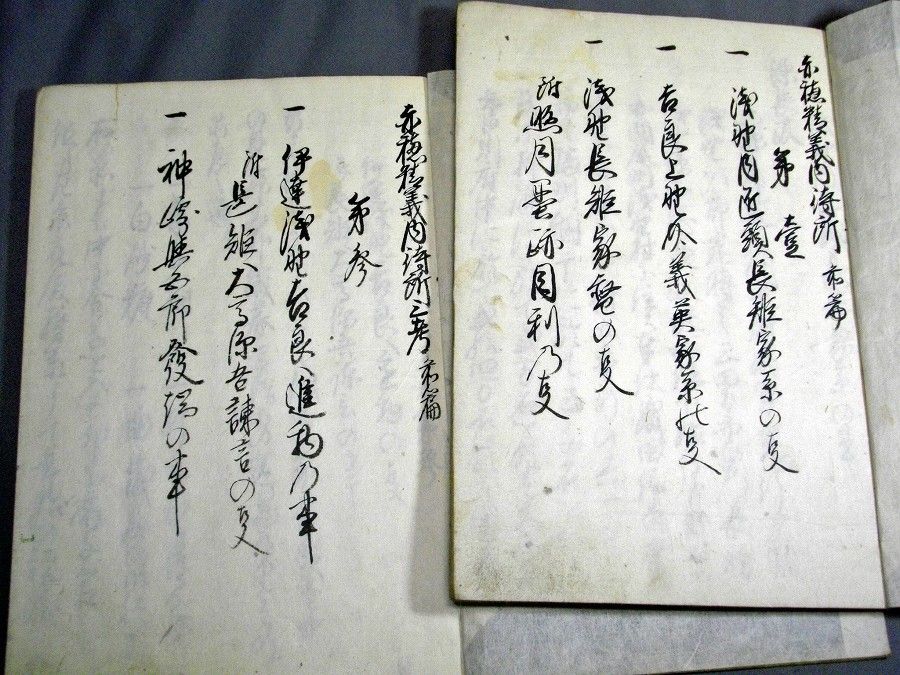 赤穂精義内侍所 前篇
第壹
一 浅野内匠頭長矩家系の事
一 吉良上野介義英家系の事
一 浅野長矩家督の事
附照月墨跡目利乃事
赤穂精義内侍所 前篇
第参
一 伊達浅野吉良へ進物乃事
附長矩へ大高源吾諌言の事
一 神崎與五郎發端の事